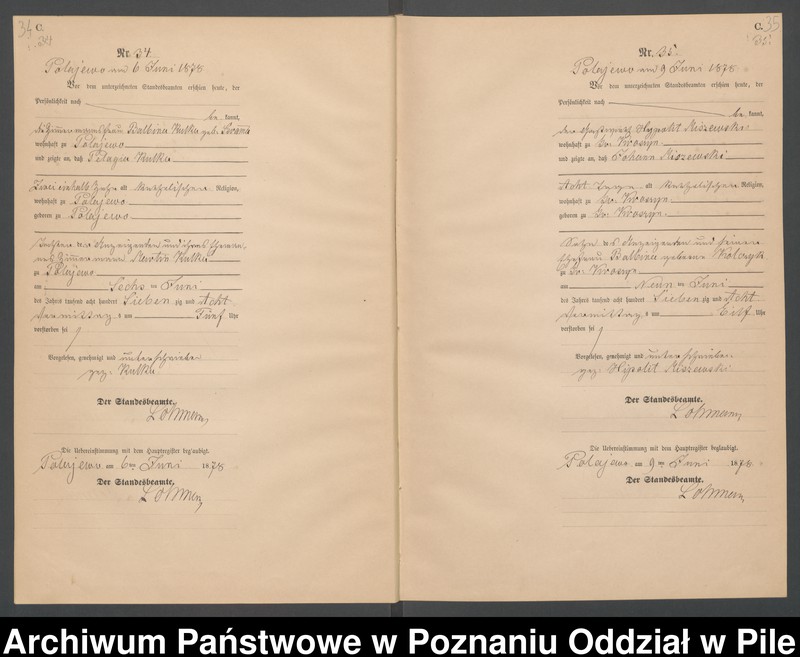 34
C.
34
Nr. 34
Polajewo am 6 Juni 1878
Vor dem unterzeichneten Standesbeamten erschien heute, der
Persönlichkeit nach
be kannt,
Balbina Kutka geb.
wohnhaft zu Polajewo
und zeigte an, daß Pelagia Kutka
alt katholischer Religion,
wohnhaft zu Polajewo
geboren zu Polajewo
Tochter der Anzeigenden und ihres Ehemannes
Zimmermann Kutka
zu Polajewo
am Sechs ten Juni
des Jahres tausend acht hundert Sieben zig und Acht
Vormittag s um Fünf Uhr
verstorben sei
Vorgelesen, genehmigt und unterschrieben
gez. Kutka
Der Standesbeamte.
Lohmann
Die Uebereinstimmung mit dem Hauptregister beglaubigt.
Polajewo am 6ten Juni 1878
Der Standesbeamte.
Lohmann
C.
35
35
Nr. 35
Polajewo am 9 Juni 1878
Vor dem unterzeichneten Standesbeamten erschien heute, der
Persönlichkeit nach
be kannt,
der Hypolit Kiszewski
wohnhaft zu
und zeigte an, daß Johann Kiszewski
Acht Tage alt katholischer Religion,
wohnhaft zu
geboren zu
Sohn des Anzeigenden und seiner
Ehefrau Balbina geborene
zu
am Neun ten Juni
des Jahres tausend acht hundert Sieben zig und Acht
Vormittag s um Elf Uhr
verstorben sei
Vorgelesen, genehmigt und unterschrieben
gez. Hipolit Kiszewski
Der Standesbeamte.
Lohmann
Die Uebereinstimmung mit dem Hauptregister beglaubigt.
Polajewo am 9ten Juni 1878
Der Standesbeamte.
Lohmann
Archiwum Państwowe w Poznaniu Oddział w Pile